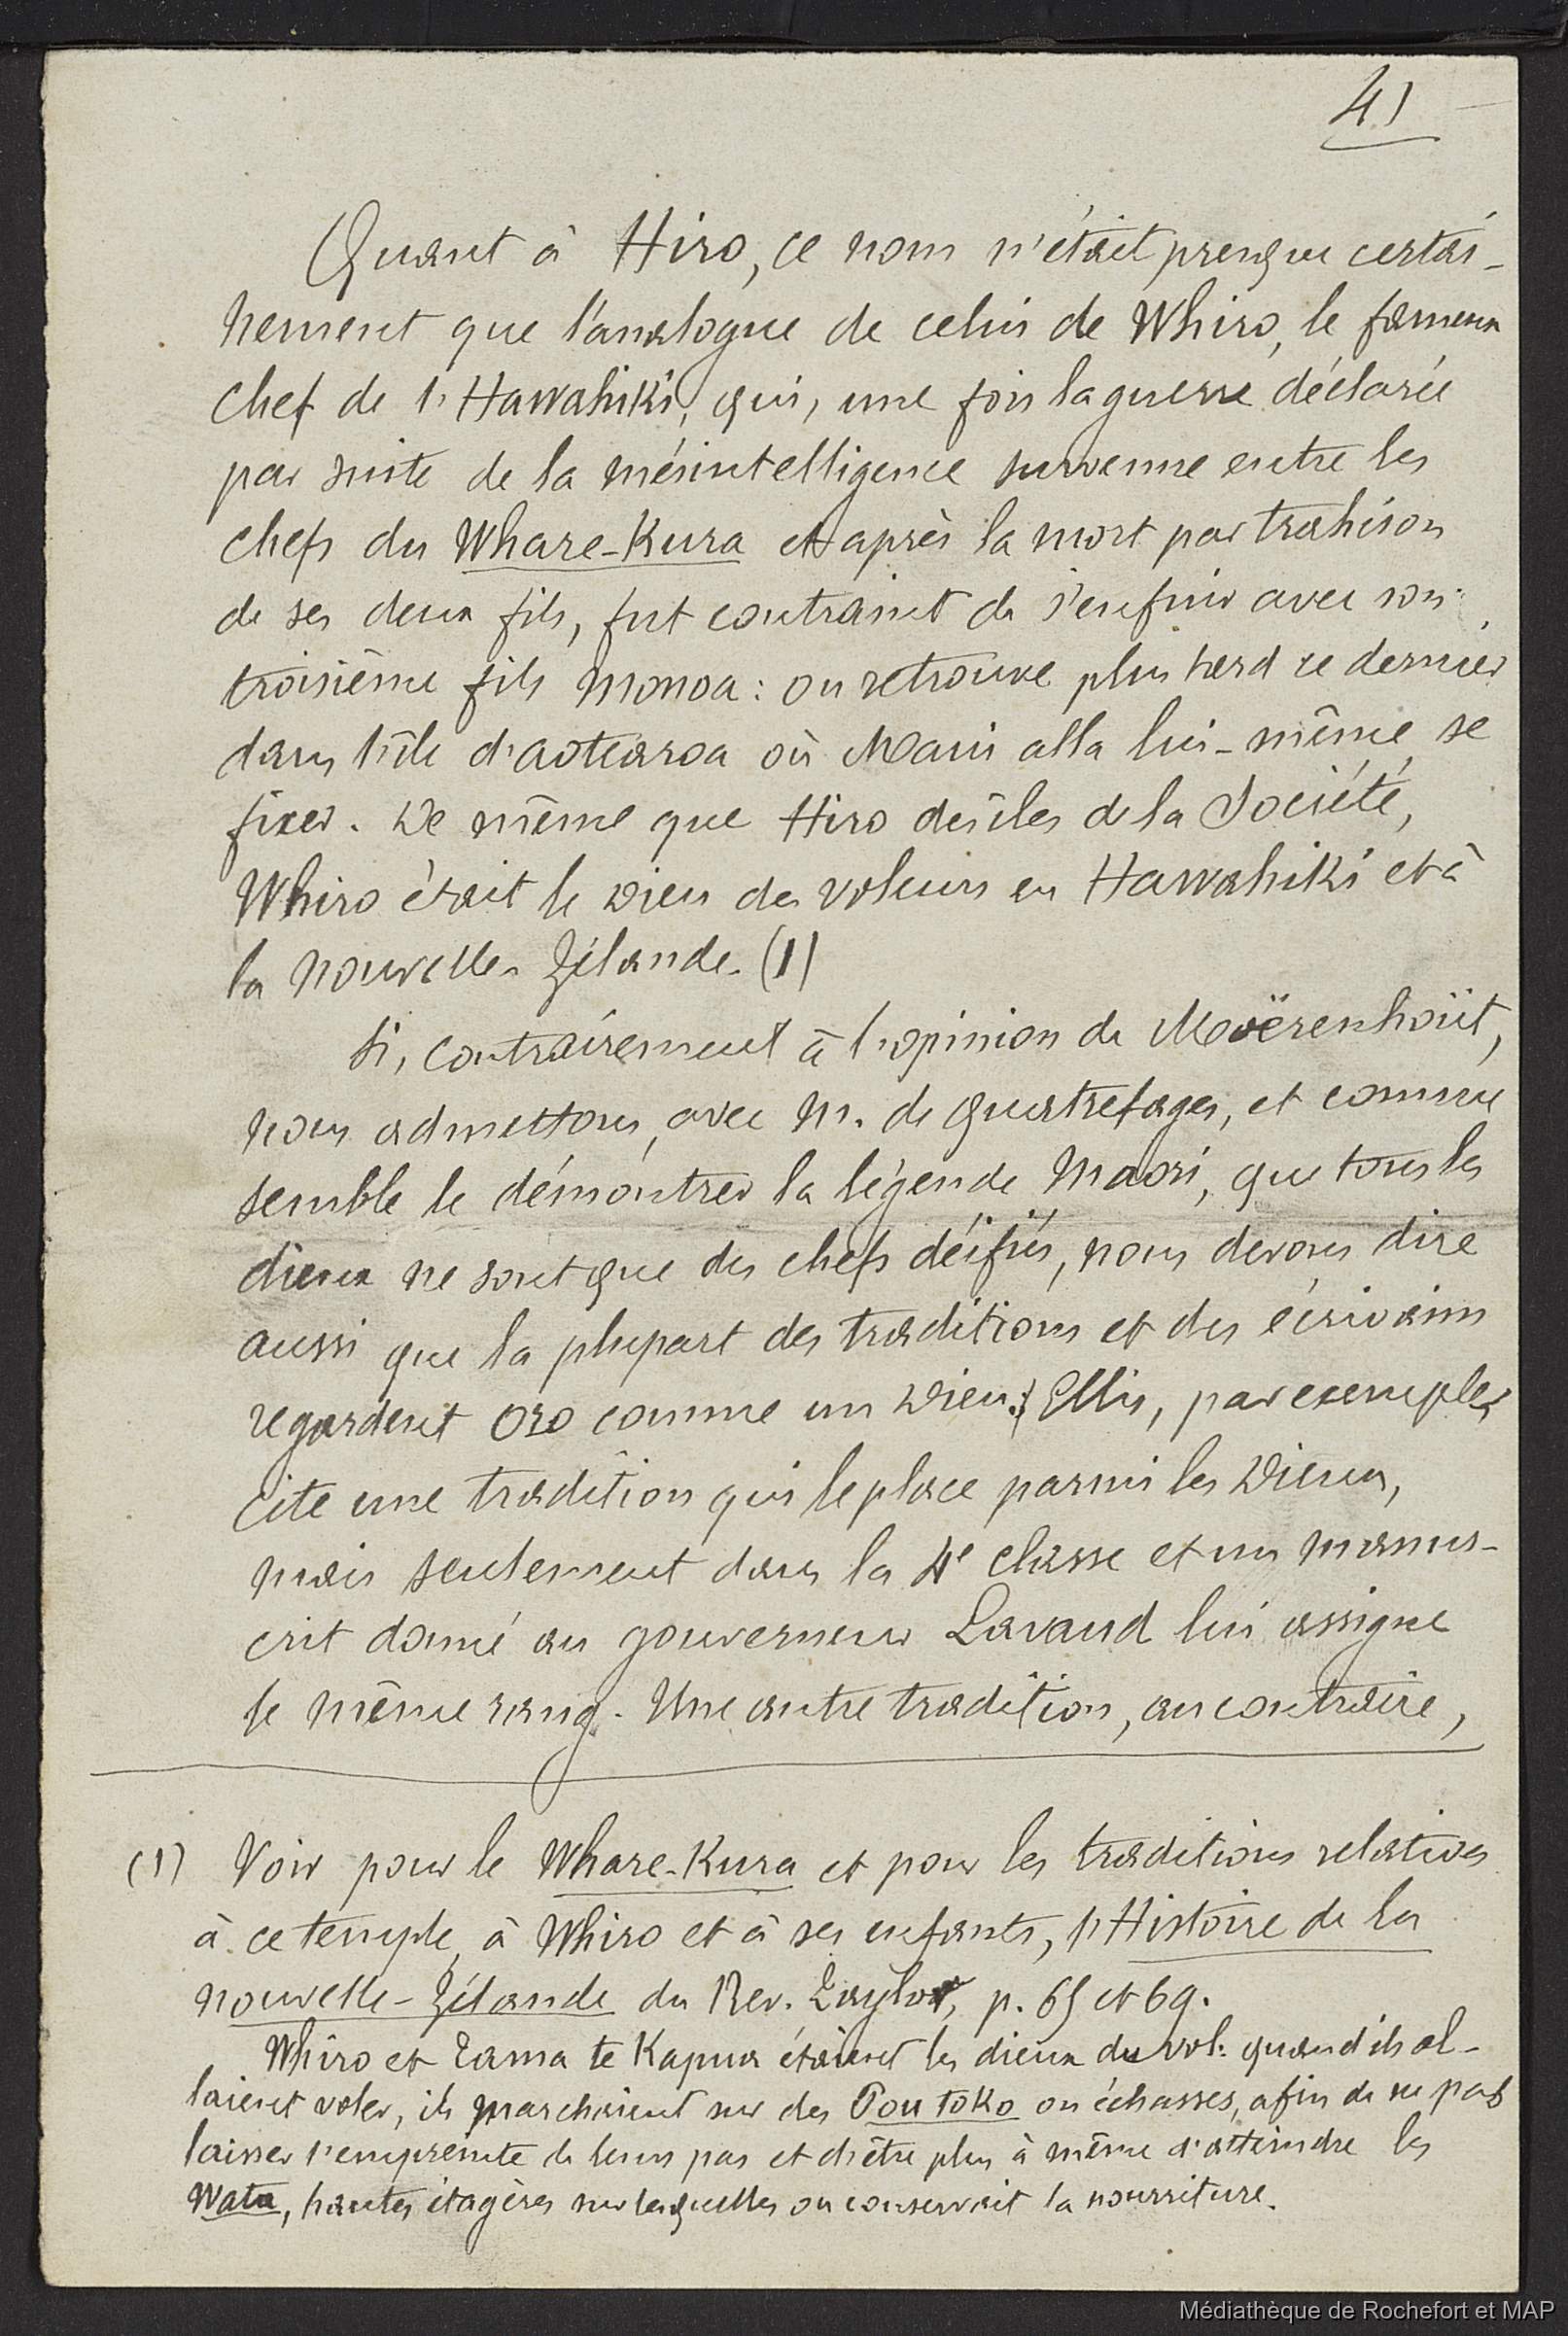 41
Quant à Hiro, ce nom n'était presque certai-
nement que l'analogue de celui de Whiro, le fameux
chef de l'Hawahiki, qui, une fois la guerre déclarée
par suite de la mésintelligence survenue entre les
chefs du Whare-Kura et après la mort par trahison
de ses deux fils, fut contraint de s'enfuir avec son
troisième fils Monoa : on retrouve plus tard ce dernier
dans l'île d'aotearoa où Maui alla lui-même se
fixer. De même que Hiro des îles de la Société,
Whiro était le Dieu des voleurs en Hawahiki et à
la Nouvelle Zélande. (1)
Si, contrairement à l'opinion de Moërenhoüt,
nous admettons, avec M. de Quatrefages, et comme
semble le démontrer la légende Maori, que tous les
dieux ne sont que des chefs déifiés, nous devons dire
aussi que la plupart des traditions et des écrivains
regardent Oro comme un Dieu; Ellis, par exemple,
cite une tradition qui le place parmi les Dieux,
mais seulement dans la 4e classe et un manus-
crit donné au gouverneur Lavaud lui assigne
le même rang. Une autre tradition, au contraire,
(1) Voir pour le Whare-Kura et pour les traditions relatives
à ce temple, à Whiro et à ses enfants, l'Histoire de la
nouvelle-Zélande du Rev. Taylor, p. 65 et 69.
Whiro et Tama te Kapua étaient les dieux du vol : quand ils al-
laient voler, ils marchaient sur des Pou toko ou échasses, afin de ne pas
laisser l'empreinte de leurs pas et d'être plus à même d'atteindre les
Wata, hautes étagères sur lesquelles on conservait la nourriture.
Médiathèque de Rochefort et MAP